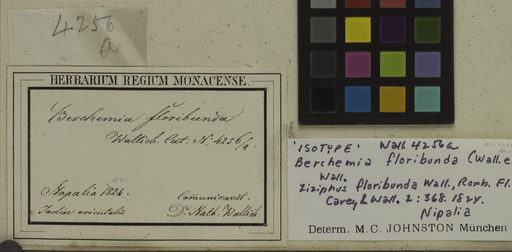 4256
a
HERBARIUM REGIUM MONACENSE.
Berchemia floribunda
Wallich. Cat. N. 4256/a.
Napalia 1824.
Indiae orientalis
Comunicavit.
Dr. Nath. Wallich
'ISOTYPE' Wall 4256a
Berchemia floribunda (Wall. e
Wall.
Ziziphus floribunda Wall., Roxb. Fl.
Carey & Wall. 2: 368. 1824.
Nipalia
Determ. M. C. JOHNSTON München